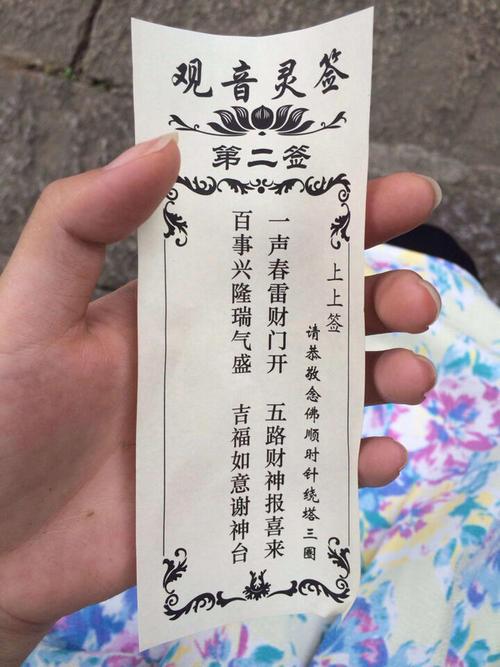 观音灵签
第二签
上上签
请恭敬念佛顺时针绕塔三圈
一声春雷财门开 五路财神报喜来
百事兴隆瑞气盛 吉福如意谢神台